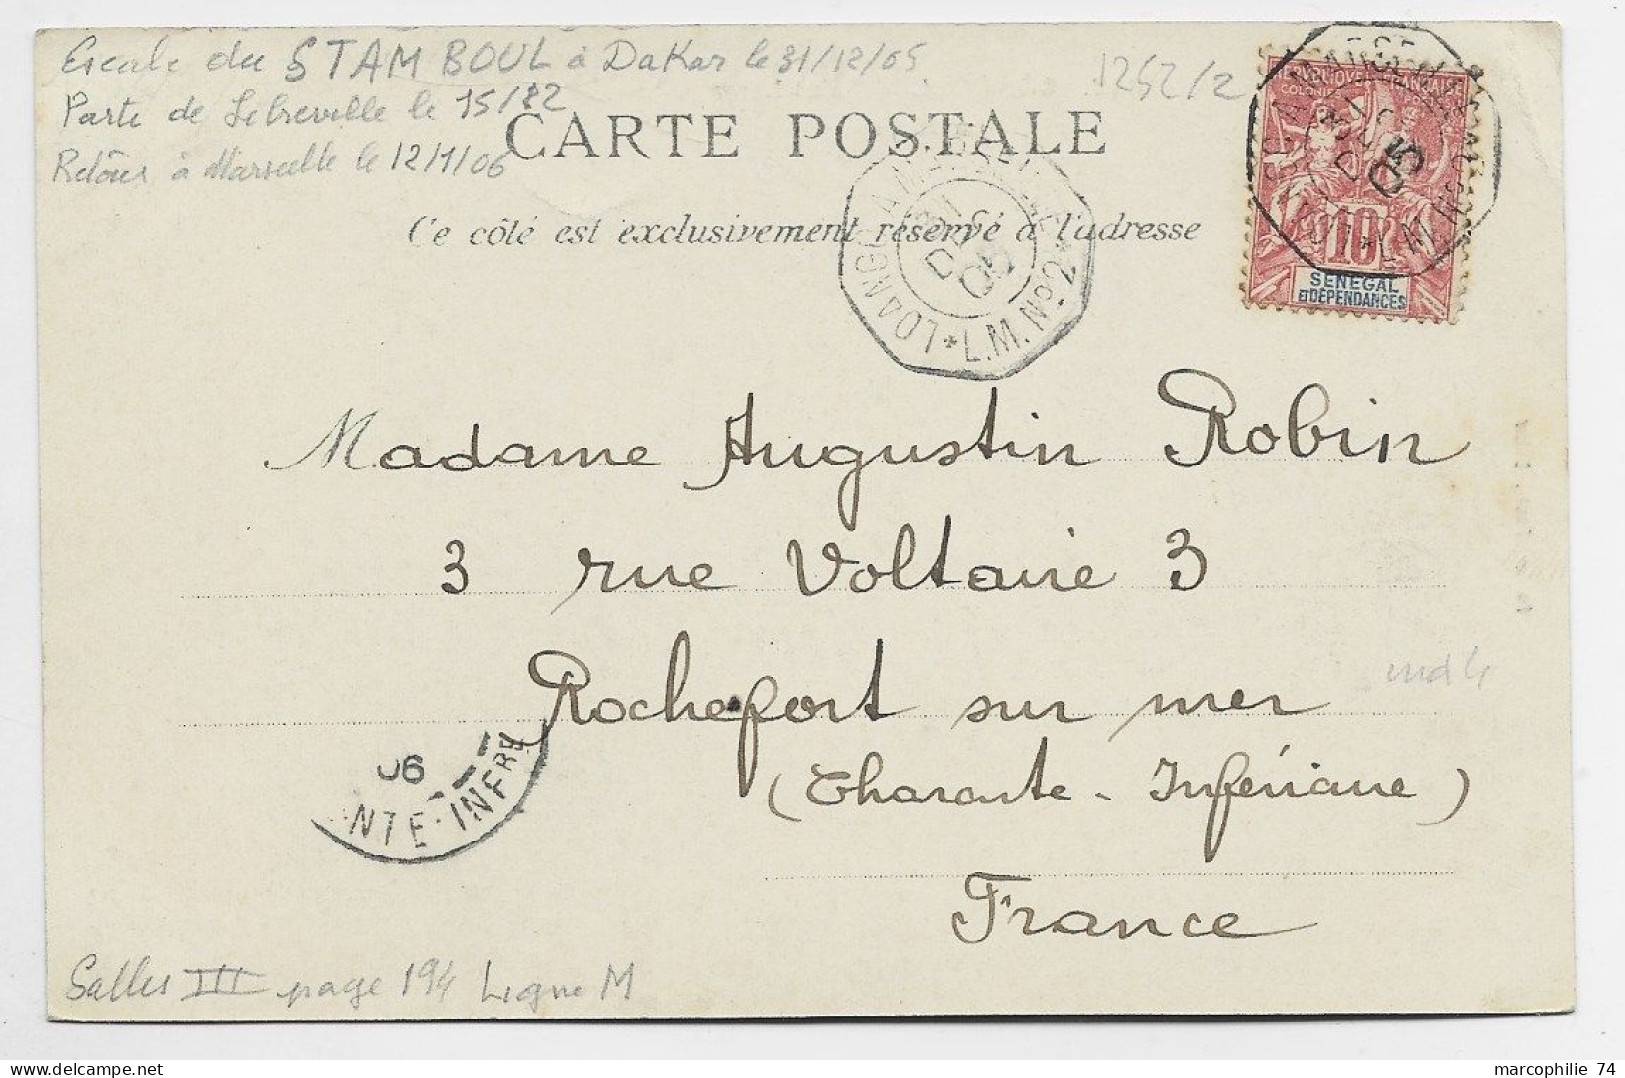 Escale du STAMBOUL à Dakar le 31/12/05
Parte de Lebreville le 15/12
Retour à Marseille le 12/1/06
1252/2
CARTE POSTALE
Ce côté est exclusivement réservé à l'adresse
LOANGO A MARSEILLE
31
DEC
05
* L.M. Nº 2 *
COLONIES
10
SENEGAL
ET DÉPENDANCES
05
Madame Augustin Robin
3 rue Voltaire 3
Rochefort sur mer
(Charente-Inférieure)
France
ind 4
06
NTE-INFRE
Salles III page 194 Ligne M
marcophilie 74